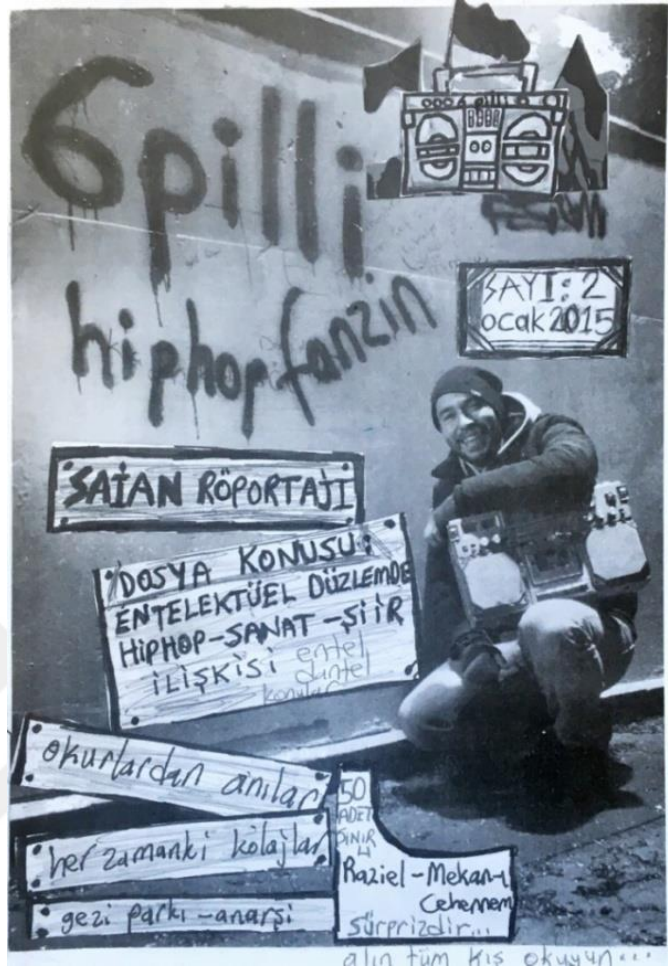 6pilli
hiphopfanzin
SAYI: 2
ocak 2015
SAİAN RÖPORTAJI
DOSYA KONUSU:
ENTELEKTÜEL DÜZLEMDE
HİPHOP-SANAT-ŞİİR
İLİŞKİSİ entel
dantel
konular
okurlardan anılar
her zamanki kolajlar
gezi parkı-anarşi
50
ADET
SINIR
LI
Raziel-Mekan-ı
Cehennem
sürprizdir...
alın tüm kış okuyun...